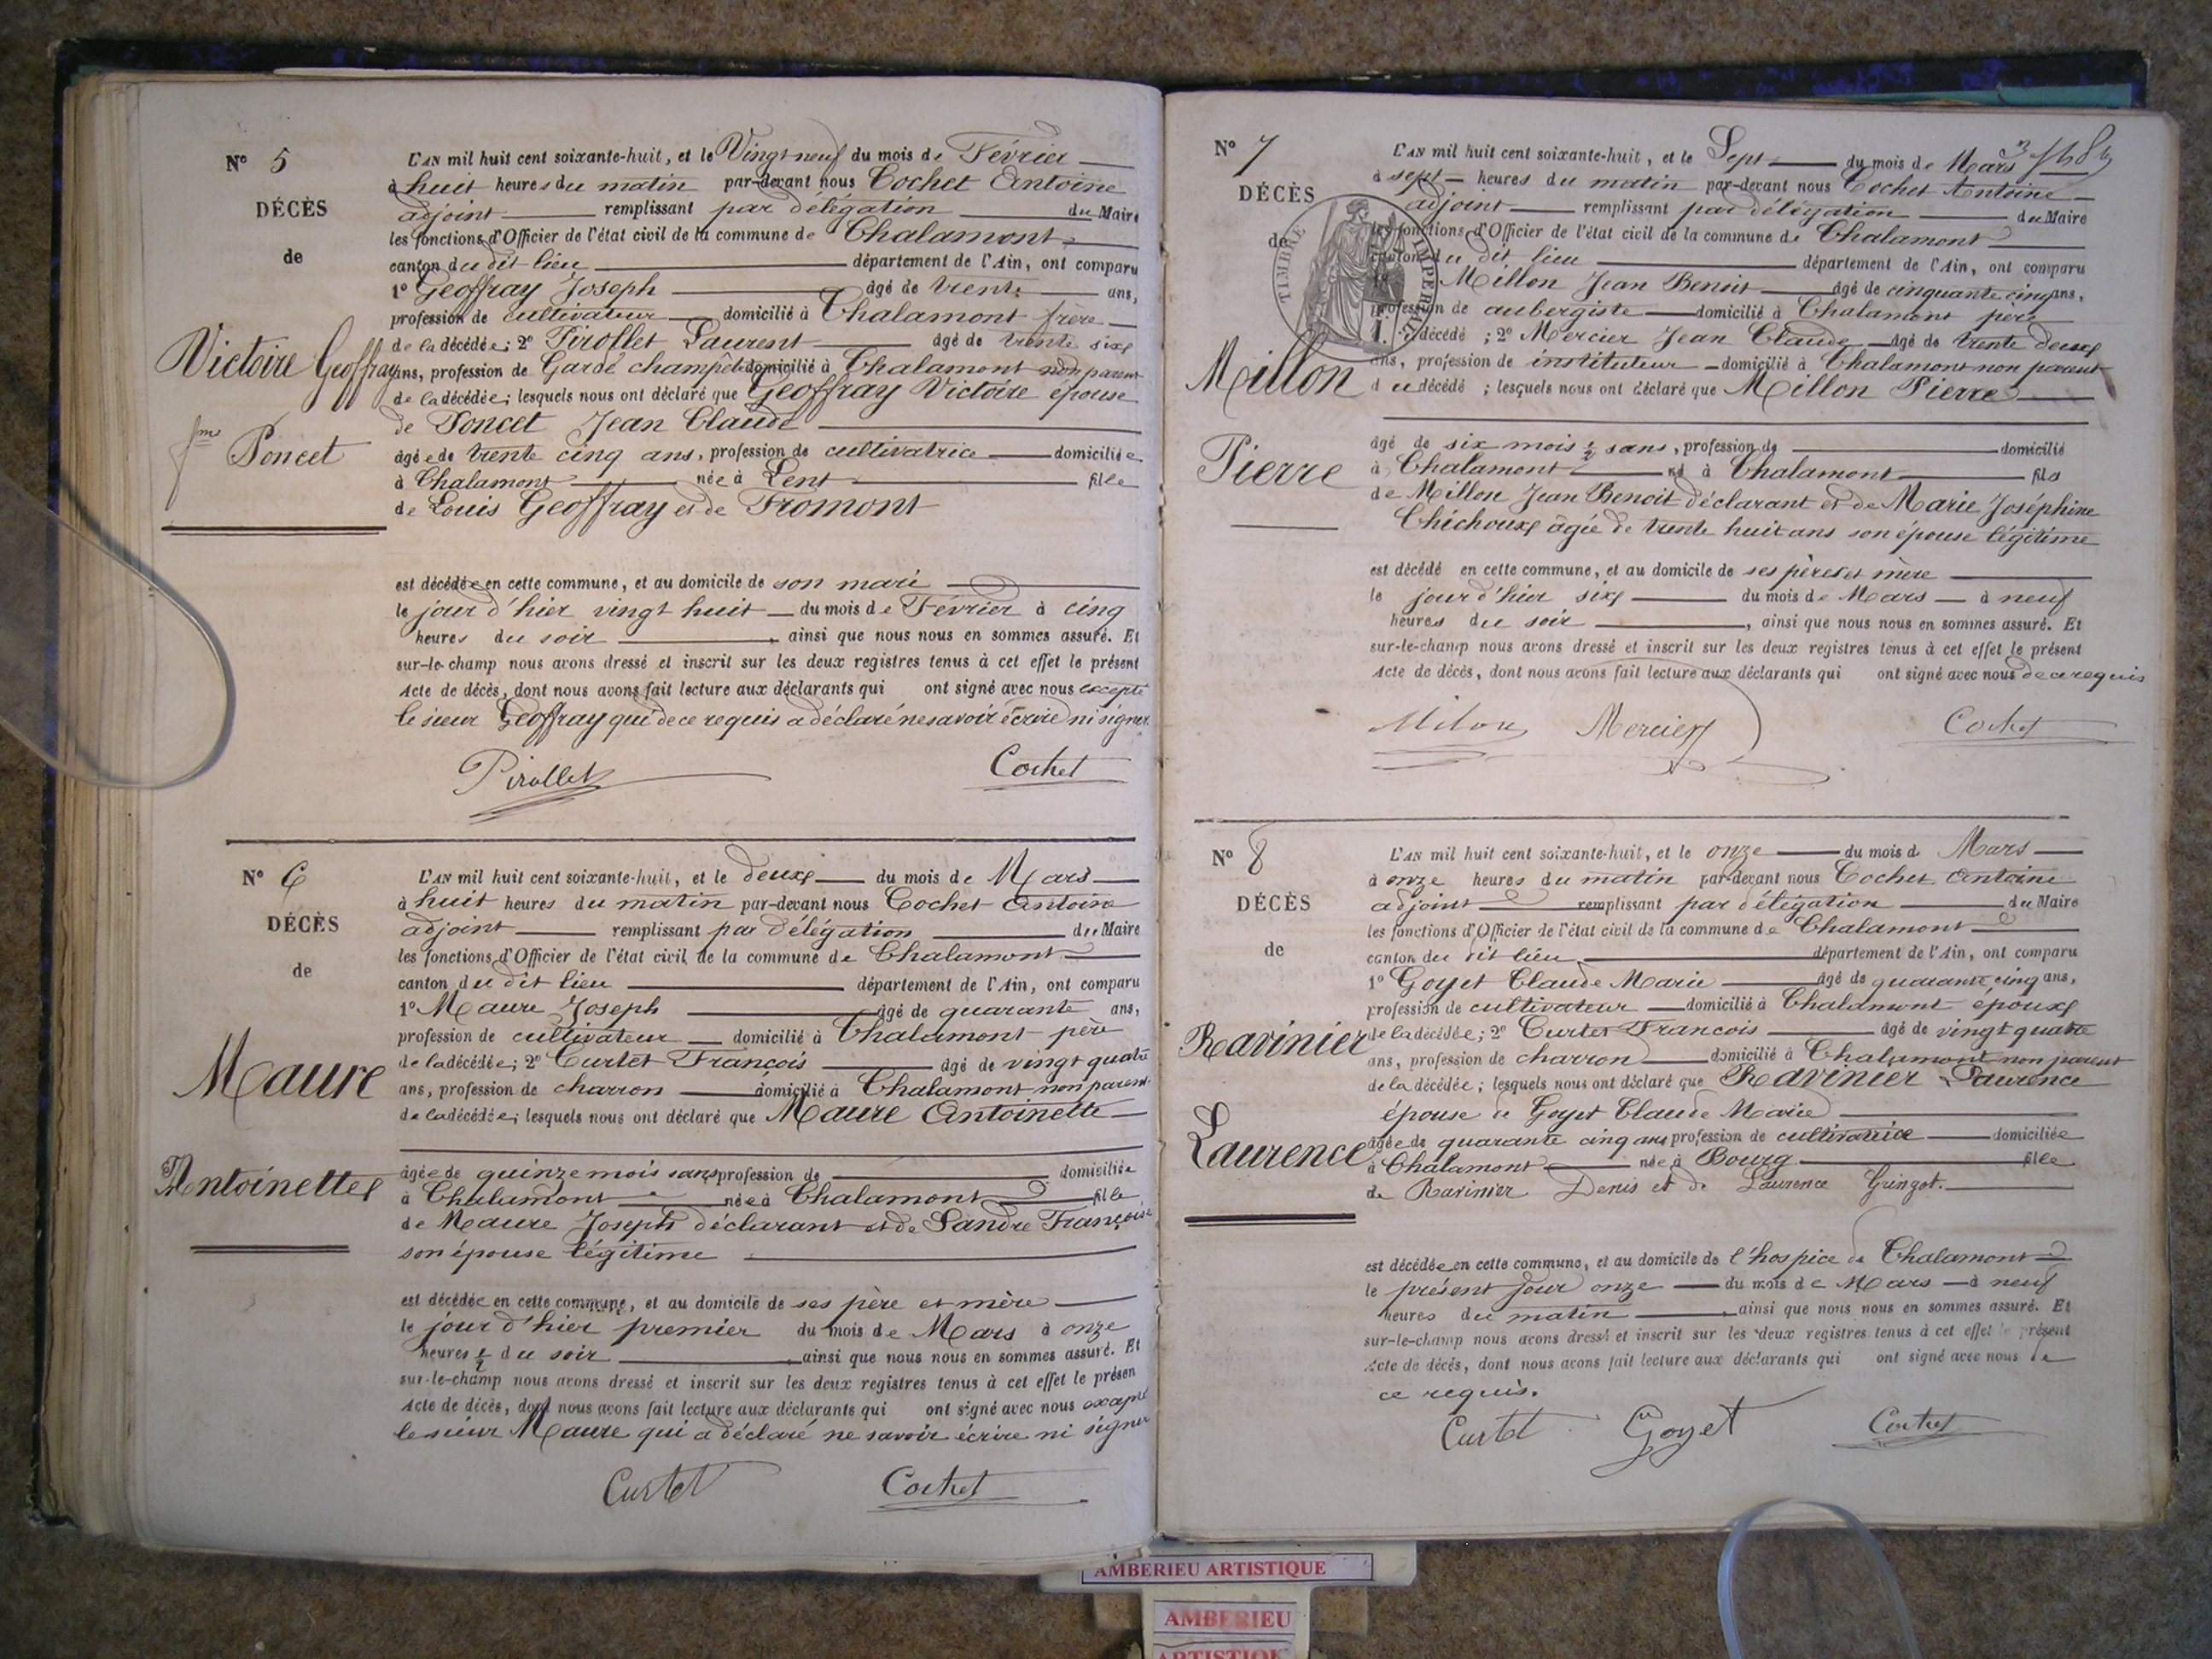 N° 5
DÉCÈS
de
Victoire Geoffray
fme Poncet
L'AN mil huit cent soixante-huit, et le Vingt neuf du mois de Février
à huit heures du matin par-devant nous Cochet Antoine
adjoint remplissant par délégation du Maire
les fonctions d'Officier de l'état civil de la commune de Chalamont
canton du dit lieu département de l'Ain, ont comparu
1° Geoffray Joseph âgé de trente ans,
profession de cultivateur domicilié à Chalamont frère
de la décédée; 2° Pirollet Laurent âgé de trente six
ans, profession de Garde champêt domicilié à Chalamont non parent
de la décédée; lesquels nous ont déclaré que Geoffray Victoire épouse
de Poncet Jean Claude
âgée de trente cinq ans, profession de cultivatrice domiciliée
à Chalamont née à Lent fille
de Louis Geoffray et de Fromont
est décédée en cette commune, et au domicile de son mari
le jour d'hier vingt huit du mois de Février à cinq
heures du soir, ainsi que nous nous en sommes assuré. Et
sur-le-champ nous avons dressé et inscrit sur les deux registres tenus à cet effet le présent
Acte de décès, dont nous avons fait lecture aux déclarants qui ont signé avec nous excepté
le sieur Geoffray qui de ce requis a déclaré ne savoir écrire ni signer
Pirollet Cochet
N° 6
DÉCÈS
de
Maure
Antoinette
L'AN mil huit cent soixante-huit, et le deux du mois de Mars
à huit heures du matin par-devant nous Cochet Antoine
adjoint remplissant par délégation du Maire
les fonctions d'Officier de l'état civil de la commune de Chalamont
canton du dit lieu département de l'Ain, ont comparu
1° Maure Joseph âgé de quarante ans,
profession de cultivateur domicilié à Chalamont père
de la décédée; 2° Curtet François âgé de vingt quatre
ans, profession de charron domicilié à Chalamont non parent
de la décédée; lesquels nous ont déclaré que Maure Antoinette
âgée de quinze mois sans profession de domiciliée
à Chalamont née à Chalamont fille
de Maure Joseph déclarant et de Sandre Françoise
son épouse légitime
est décédée en cette commune, et au domicile de ses père et mère
le jour d'hier premier du mois de Mars à onze
heures ½ du soir, ainsi que nous nous en sommes assuré. Et
sur-le-champ nous avons dressé et inscrit sur les deux registres tenus à cet effet le présen
Acte de décès, dont nous avons fait lecture aux déclarants qui ont signé avec nous excepté
le sieur Maure qui a déclaré ne savoir écrire ni signer
Curtet Cochet
N° 7
DÉCÈS
de
TIMBRE IMPÉRIAL
Millon
Pierre
L'AN mil huit cent soixante-huit, et le Sept du mois de Mars
à sept heures du matin par-devant nous Cochet Antoine
adjoint remplissant par délégation du Maire
les fonctions d'Officier de l'état civil de la commune de Chalamont
canton du dit lieu département de l'Ain, ont comparu
Millon Jean Benoit âgé de cinquante cinq ans,
profession de aubergiste domicilié à Chalamont père
décédé; 2° Mercier Jean Claude âgé de trente deux
ans, profession de instituteur domicilié à Chalamont non parent
du décédé; lesquels nous ont déclaré que Millon Pierre
âgé de six mois ½ sans, profession de domicilié
à Chalamont né à Chalamont fils
de Millon Jean Benoit déclarant et de Marie Joséphine
Chichoux âgée de trente huit ans son épouse légitime
est décédé en cette commune, et au domicile de ses père et mère
le jour d'hier six du mois de Mars à neuf
heures du soir, ainsi que nous nous en sommes assuré. Et
sur-le-champ nous avons dressé et inscrit sur les deux registres tenus à cet effet le présent
Acte de décès, dont nous avons fait lecture aux déclarants qui ont signé avec nous de ce requis
Milon Mercier Cochet
N° 8
DÉCÈS
de
Ravinier
Laurence
L'AN mil huit cent soixante-huit, et le onze du mois d Mars
à onze heures du matin par-devant nous Cochet Antoine
adjoint remplissant par délégation du Maire
les fonctions d'Officier de l'état civil de la commune de Chalamont
canton du dit lieu département de l'Ain, ont comparu
1° Goyet Claude Marie âgé de quarante cinq ans,
profession de cultivateur domicilié à Chalamont époux
de la décédée; 2° Curtet François âgé de vingt quatre
ans, profession de charron domicilié à Chalamont non parent
de la décédée; lesquels nous ont déclaré que Ravinier Laurence
épouse de Goyet Claude Marie
âgée de quarante cinq ans profession de cultivatrice domiciliée
à Chalamont née à Bourg fille
de Ravinier Denis et de Laurence Gringot.
est décédée en cette commune, et au domicile de l'hospice de Chalamont
le présent jour onze du mois de Mars à neuf
heures du matin, ainsi que nous nous en sommes assuré. Et
sur-le-champ nous avons dressé et inscrit sur les deux registres tenus à cet effet le présent
Acte de décès, dont nous avons fait lecture aux déclarants qui ont signé avec nous de
ce requis.
Curtet Goyet Cochet
AMBERIEU ARTISTIQUE
AMBERIEU
ARTISTIQUE